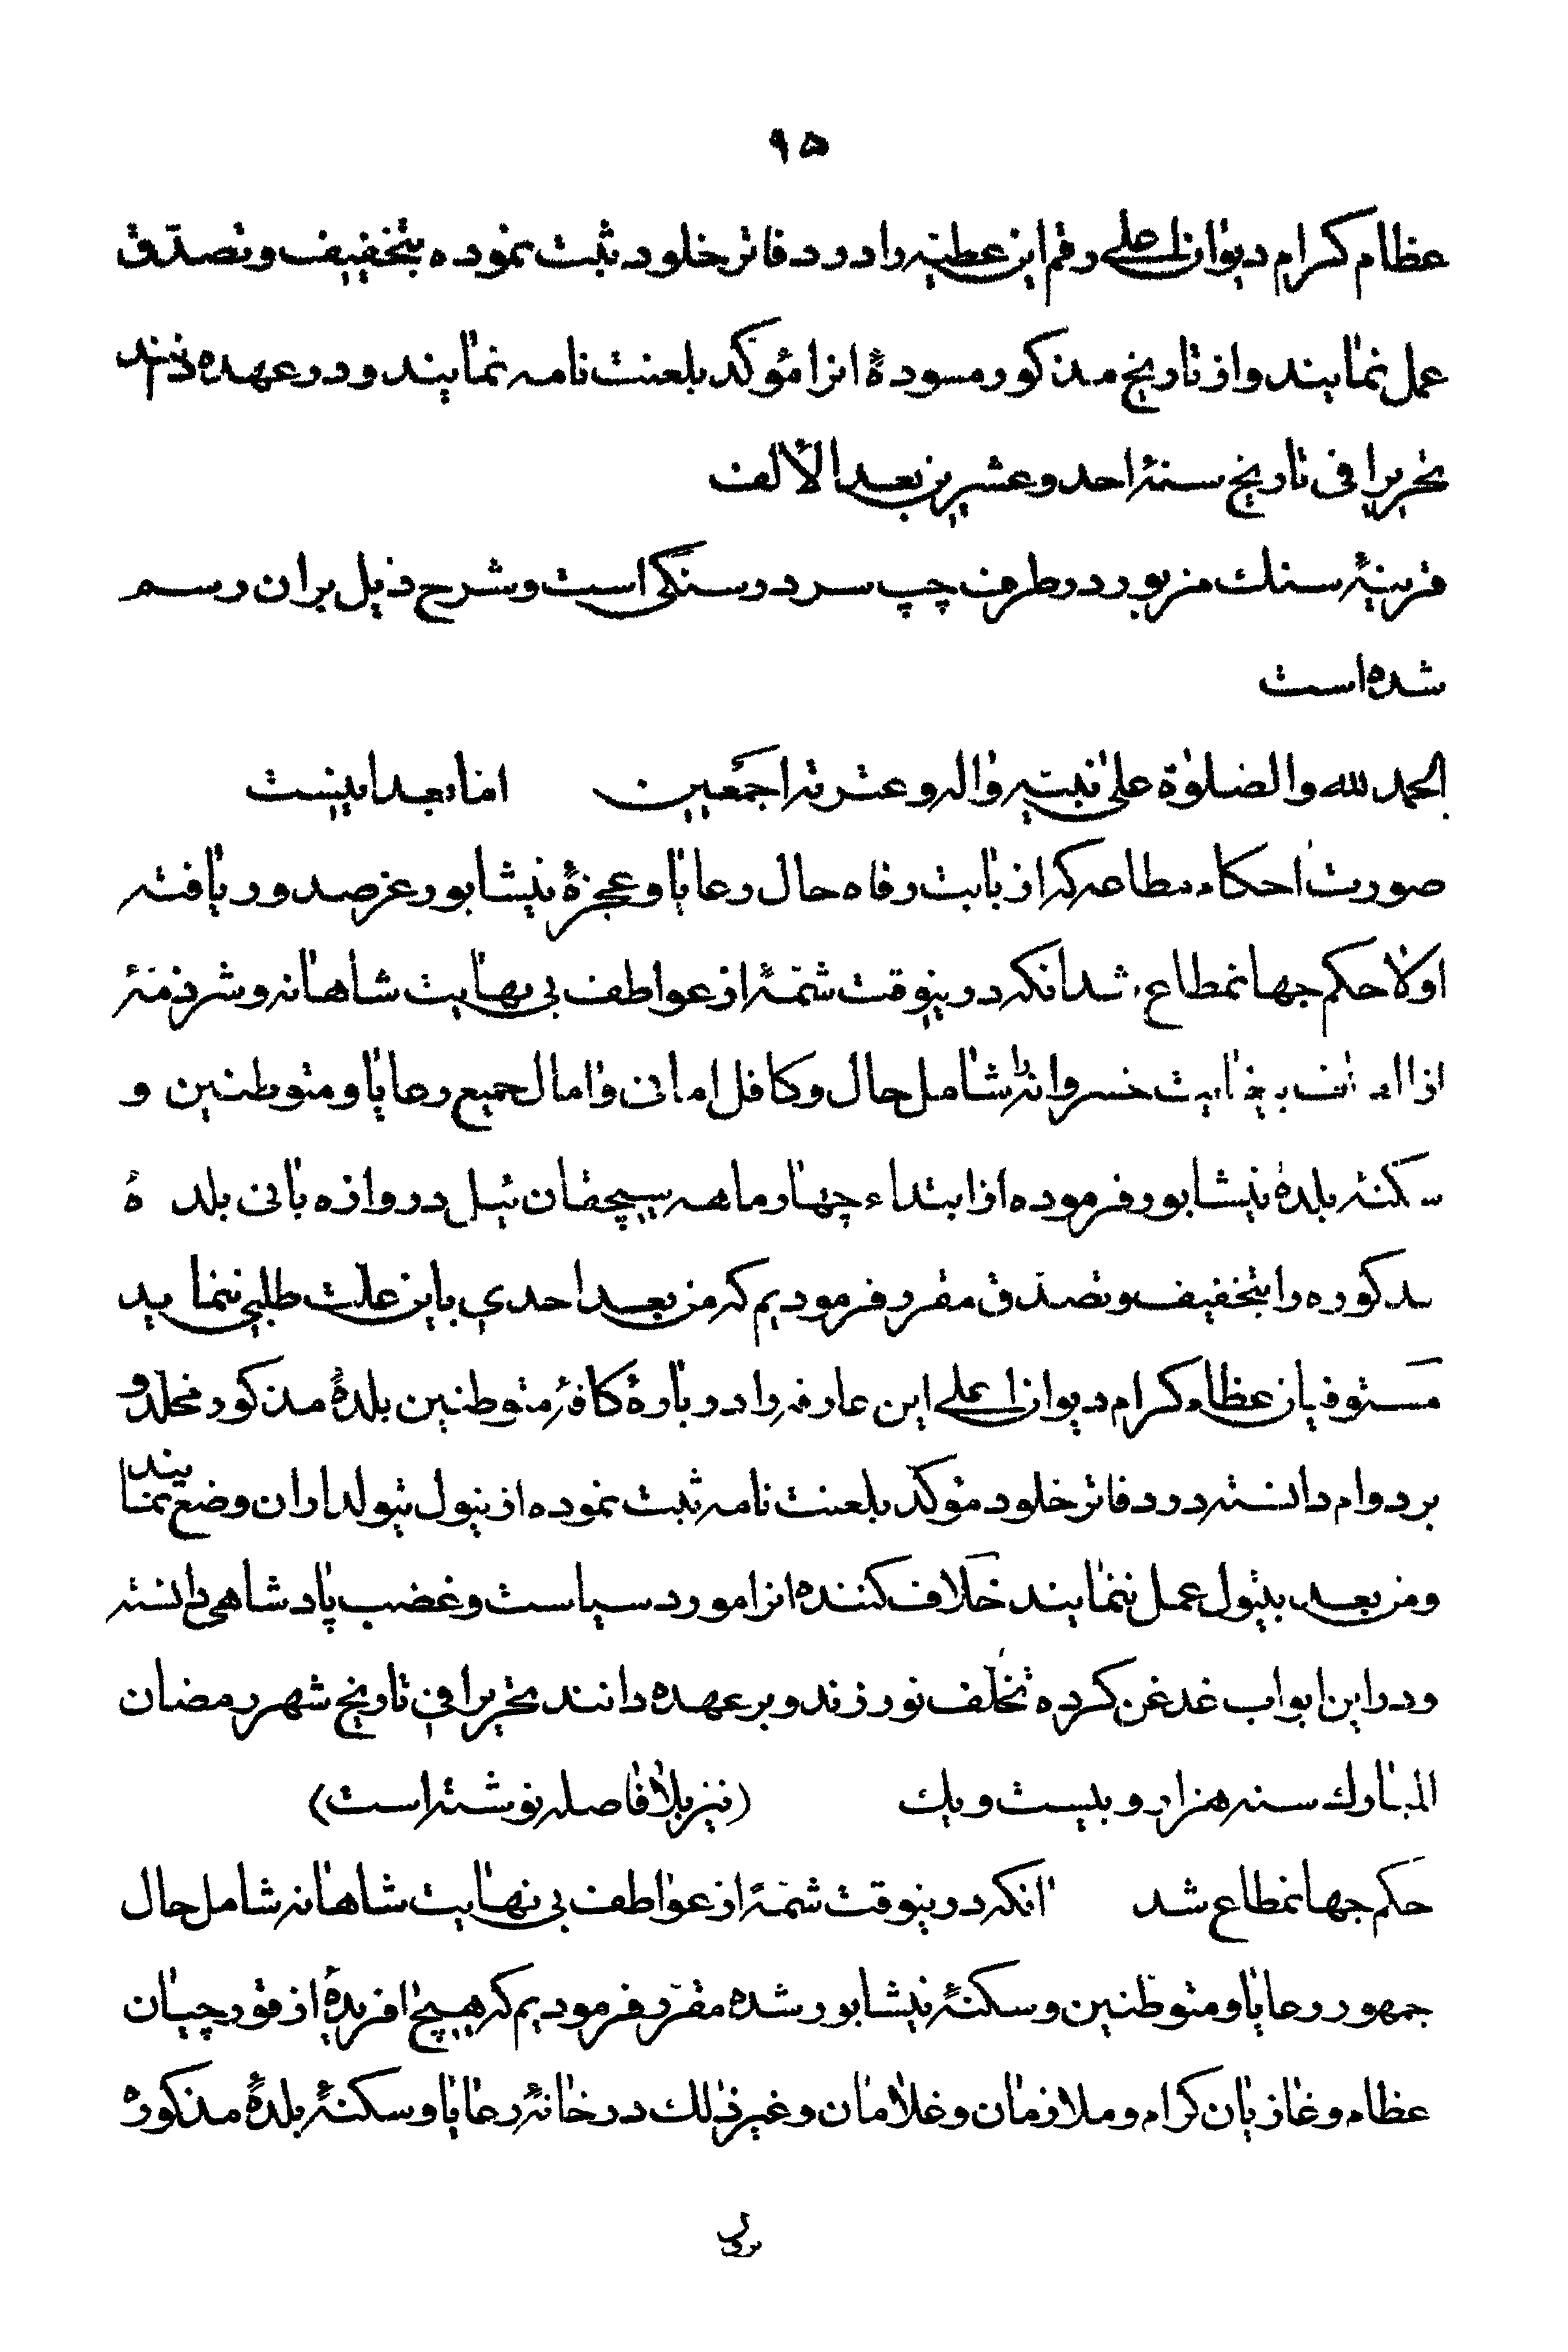 ۹۵
عظام کرام دیوان اعلی رقم این عطیه را در دفاتر خلود ثبت نموده بتخفیف و تصدّق
عمل نمایند و از تاریخ مذکور مسودهٔ انرا مؤکد بلعنت نامه نمایند و در عهده دانند
تحریرا فی تاریخ سنهٔ احد و عشرین بعد الألف
قرینهٔ سنك مزبور در طرف چپ سر در سنگی است و شرح ذیل بران رسم
شده است
الحمد لله والصلوة علی نبیه واله وعترته اجمعین امّا بعد اینست
صورت احکام مطاعه که از بابت رفاه حال رعایا و عجزهٔ نیشابور عز صدور یافته
اولا حکم جهانمطاع شد انکه درینوقت شمّهٔ از عواطف بی نهایت شاهانه و شرذمهٔ
از الطاف بیغایت خسروانه شامل حال و کافل امانی و امال جمیع رعایا و متوطنین و
سکنه بلدهٔ نیشابور فرموده از ابتداء چهار ماهه سیچقان ئیل دروازه بانی بلدهٔ
مذکوره را بتخفیف و تصدّق مقرر فرمودیم که من بعد احدی باین علّت طلبی ننماید
مستوفیان عظام کرام دیوان اعلی این عارفه را در بارهٔ کافهٔ متوطنین بلدهٔ مذکور مخلّد و
بر دوام دانسته در دفاتر خلود مؤکد بلعنت نامه ثبت نموده از تیول تیولداران وضع نمایند
و من بعد بتیول عمل ننمایند خلاف کننده انرا مورد سیاست و غضب پادشاهی دانسته
و در این ابواب غدغن کرده تخلّف نورزند و بر عهده دانند تحریرا فی تاریخ شهر رمضان
المبارك سنه هزار و بیست و یك (نیز بلا فاصله نوشته است)
حکم جهانمطاع شد انکه درینوقت شمّهٔ از عواطف بی نهایت شاهانه شامل حال
جمهور رعایا و متوطّنین و سکنهٔ نیشابور شده مقرّر فرمودیم که هیچ افریدهٔ از قورچیان
عظام و غازیان کرام و ملازمان و غلامان و غیر ذلك در خانهٔ رعایا و سکنهٔ بلدهٔ مذکوره